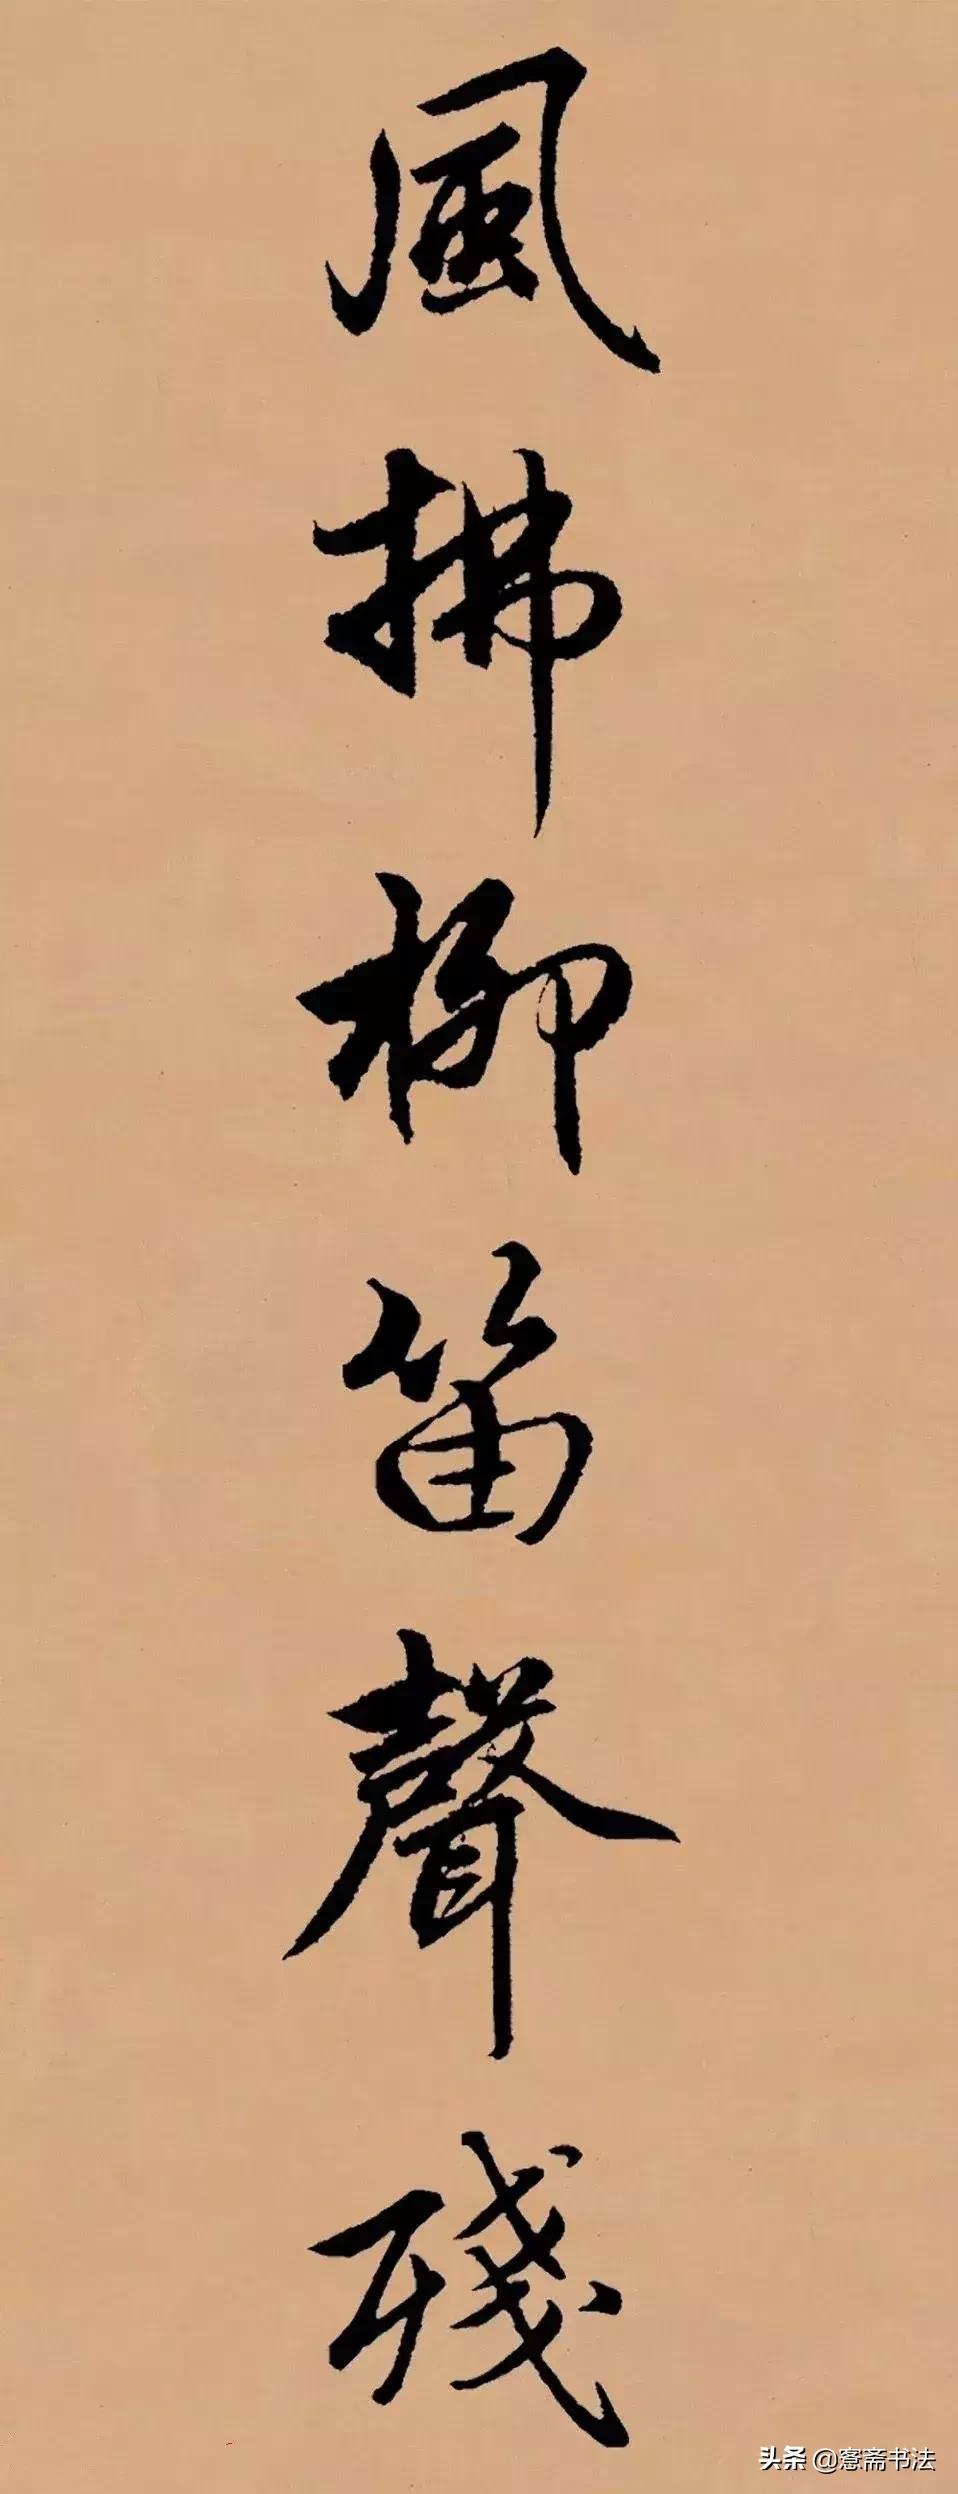 風拂柳笛聲殘
头条 @寋斋书法